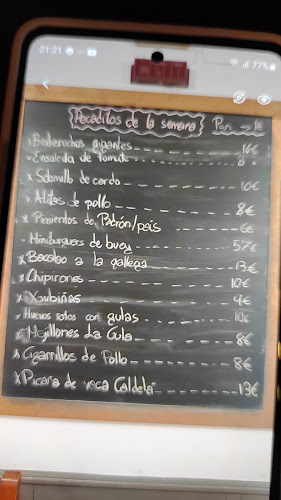 21:21
77%
Pecaditos de la semana Pan → 1€
x Berberechos gigantes 16€
- Ensalada de tomate 8€
x Solomillo de cerdo 10€
x Alitas de pollo 8€
x Pimientos de Padrón/país 6€
- Miniburguers de buey 5,7€
x Bacalao a la gallega 13€
x Chipirones 10€
x Xoubiñas 9€
x Huevos rotos con gulas 10€
x Mejillones La Gula 8€
x Cigarrillos de Pollo 8€
x Picaña de vaca Caldelá 13€